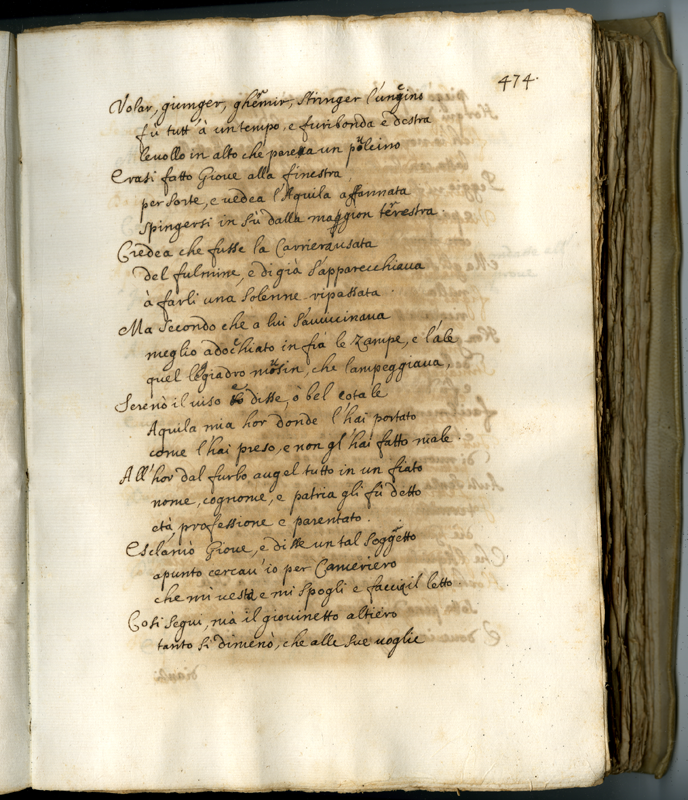 474.
Volar, giunger, ghermir, stringer l'ungino
fù tutt' à un tempo, e furibonda e destra
levollo in alto che parea un pulcino
Erasi fatto Giove alla finestra
per sorte, e vedea l'Aquila affannata
spingersi in sù dalla maggion terrestra.
Credea che fusse la Carriera usata
del fulmine, e di già s'apparecchiava
à farli una solenne ripassata.
Ma secondo che a lui s'avvicinava
meglio adocchiato in frà le zampe, e l'ale
quel leggiadro mosin, che lampeggiava,
Serenò il viso e disse, ò bel cotale
Aquila mia hor donde l'hai portato
come l'hai preso, e non gl'hai fatto male.
All'hor dal furbo augel tutto in un fiato
nome, cognome, e patria gli fù detto
età, professione e parentato.
Esclamò Giove, e disse un tal soggetto
apunto cercav'io per Cameriero
che mi vesta, e mi spogli e facci il letto.
Così seguì, mà il giovinetto altiero
tanto si dimenò, che alle sue voglie